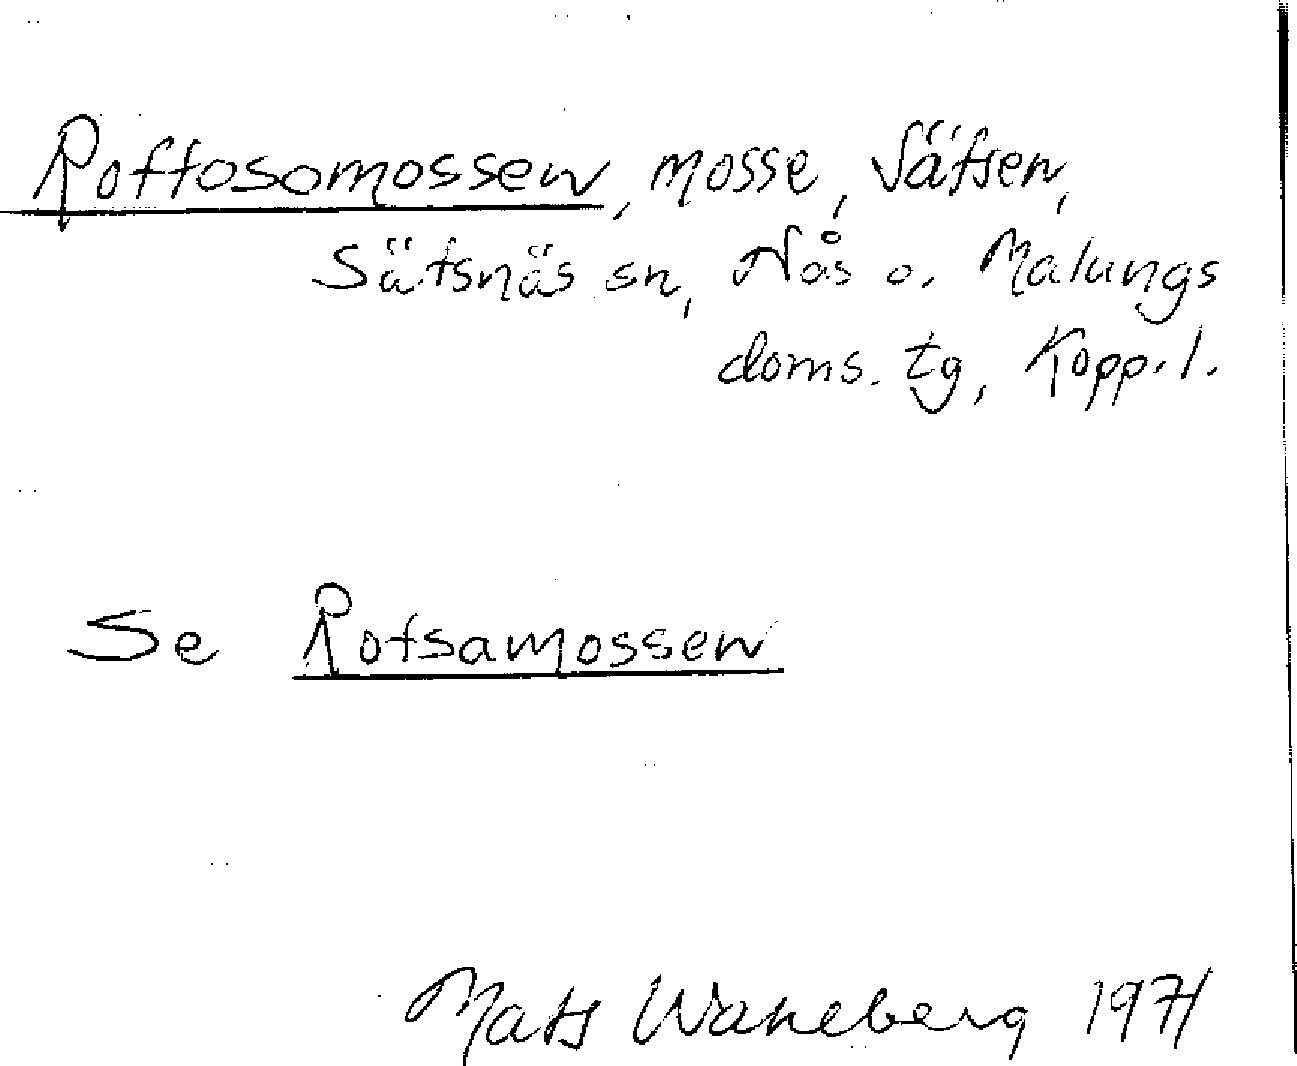 Rottosomossen, mosse, Säfsen,
Säfsnäs sn, Nås o. Malungs
doms. tg, Kopp. l.
Se Rotsamossen
Mats Wahlberg 1971